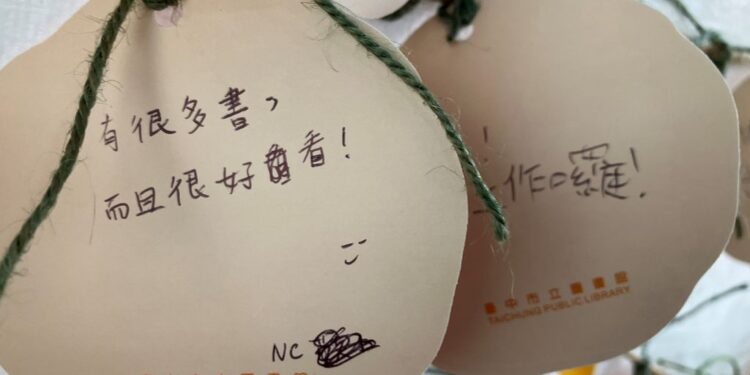 有很多書，
而且很好看！
NC
！
作囉！
臺中市立圖書館
TAICHUNG PUBLIC LIBRARY